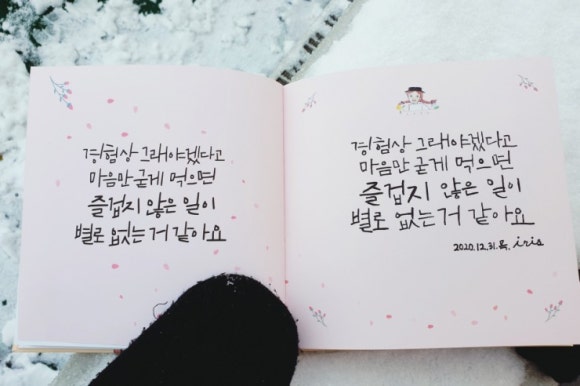 경험상 그래야겠다고
마음만 굳게 먹으면
즐겁지 않은 일이
별로 없는 거 같아요
경험상 그래야겠다고
마음만 굳게 먹으면
즐겁지 않은 일이
별로 없는 거 같아요
2020.12.31.목. iris